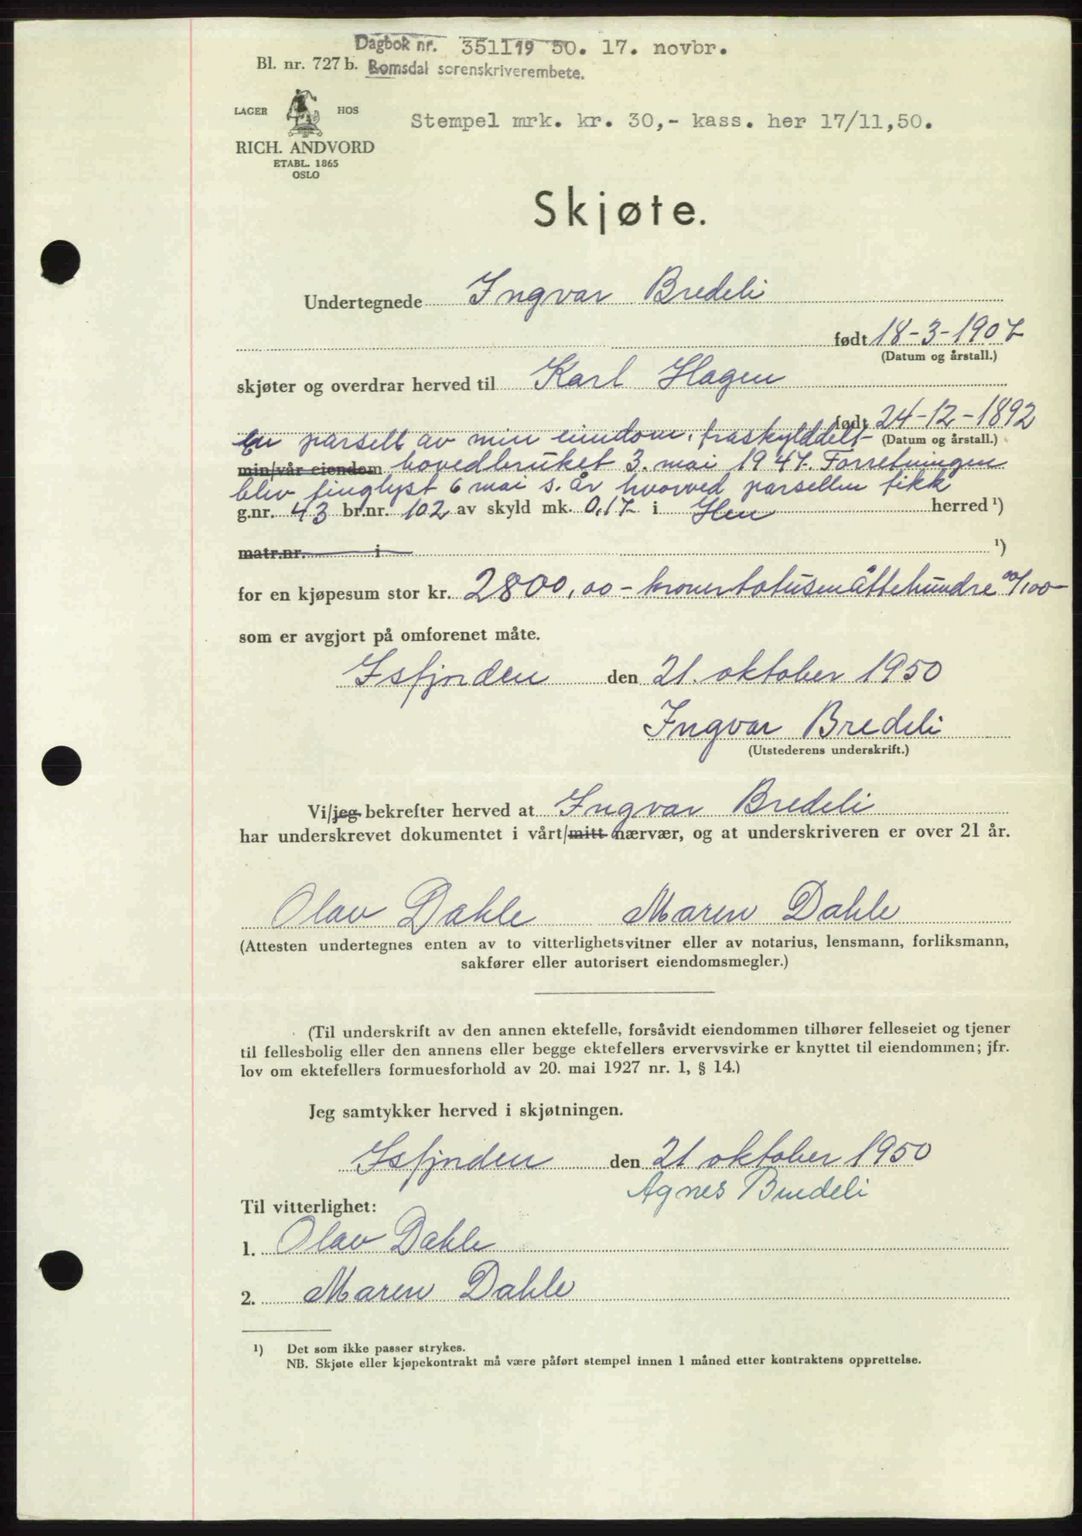 Dagbok nr. 351119 50. 17. novbr.
Bl. nr. 727 b. Romsdal sorenskriverembete.
LAGER HOS
Stempel mrk. kr. 30,- kass. her 17/11,50.
RICH. ANDVORD
ETABL. 1865
OSLO
Skjøte.
Undertegnede Ingvar Bredeli
født 18-3-1907
(Datum og årstall.)
skjøter og overdrar herved til Karl Hagen
født 24-12-1892
En parsell av min eiendom, fraskylddelt (Datum og årstall.)
min/vår eiendom hovedbruket 3. mai 1947. Forretningen
blev tinglyst 6 mai s. år hvorved parsellen fikk
g.nr. 43 br.nr. 102 av skyld mk. 0,17 i Hen herred ¹)
matr.nr. i ¹)
for en kjøpesum stor kr. 2800,00 - kronertotusenåttehundre 00/100-
som er avgjort på omforenet måte.
Isfjorden den 21. oktober 1950
Ingvar Bredeli
(Utstederens underskrift.)
Vi/jeg bekrefter herved at Ingvar Bredeli
har underskrevet dokumentet i vårt/mitt nærvær, og at underskriveren er over 21 år.
Olav Dahle Maren Dahle
(Attesten undertegnes enten av to vitterlighetsvitner eller av notarius, lensmann, forliksmann,
sakfører eller autorisert eiendomsmegler.)
(Til underskrift av den annen ektefelle, forsåvidt eiendommen tilhører felleseiet og tjener
til fellesbolig eller den annens eller begge ektefellers ervervsvirke er knyttet til eiendommen; jfr.
lov om ektefellers formuesforhold av 20. mai 1927 nr. 1, § 14.)
Jeg samtykker herved i skjøtningen.
Isfjorden den 21 oktober 1950
Agnes Bredeli
Til vitterlighet:
1. Olav Dahle
2. Maren Dahle
¹) Det som ikke passer strykes.
NB. Skjøte eller kjøpekontrakt må være påført stempel innen 1 måned etter kontraktens opprettelse.